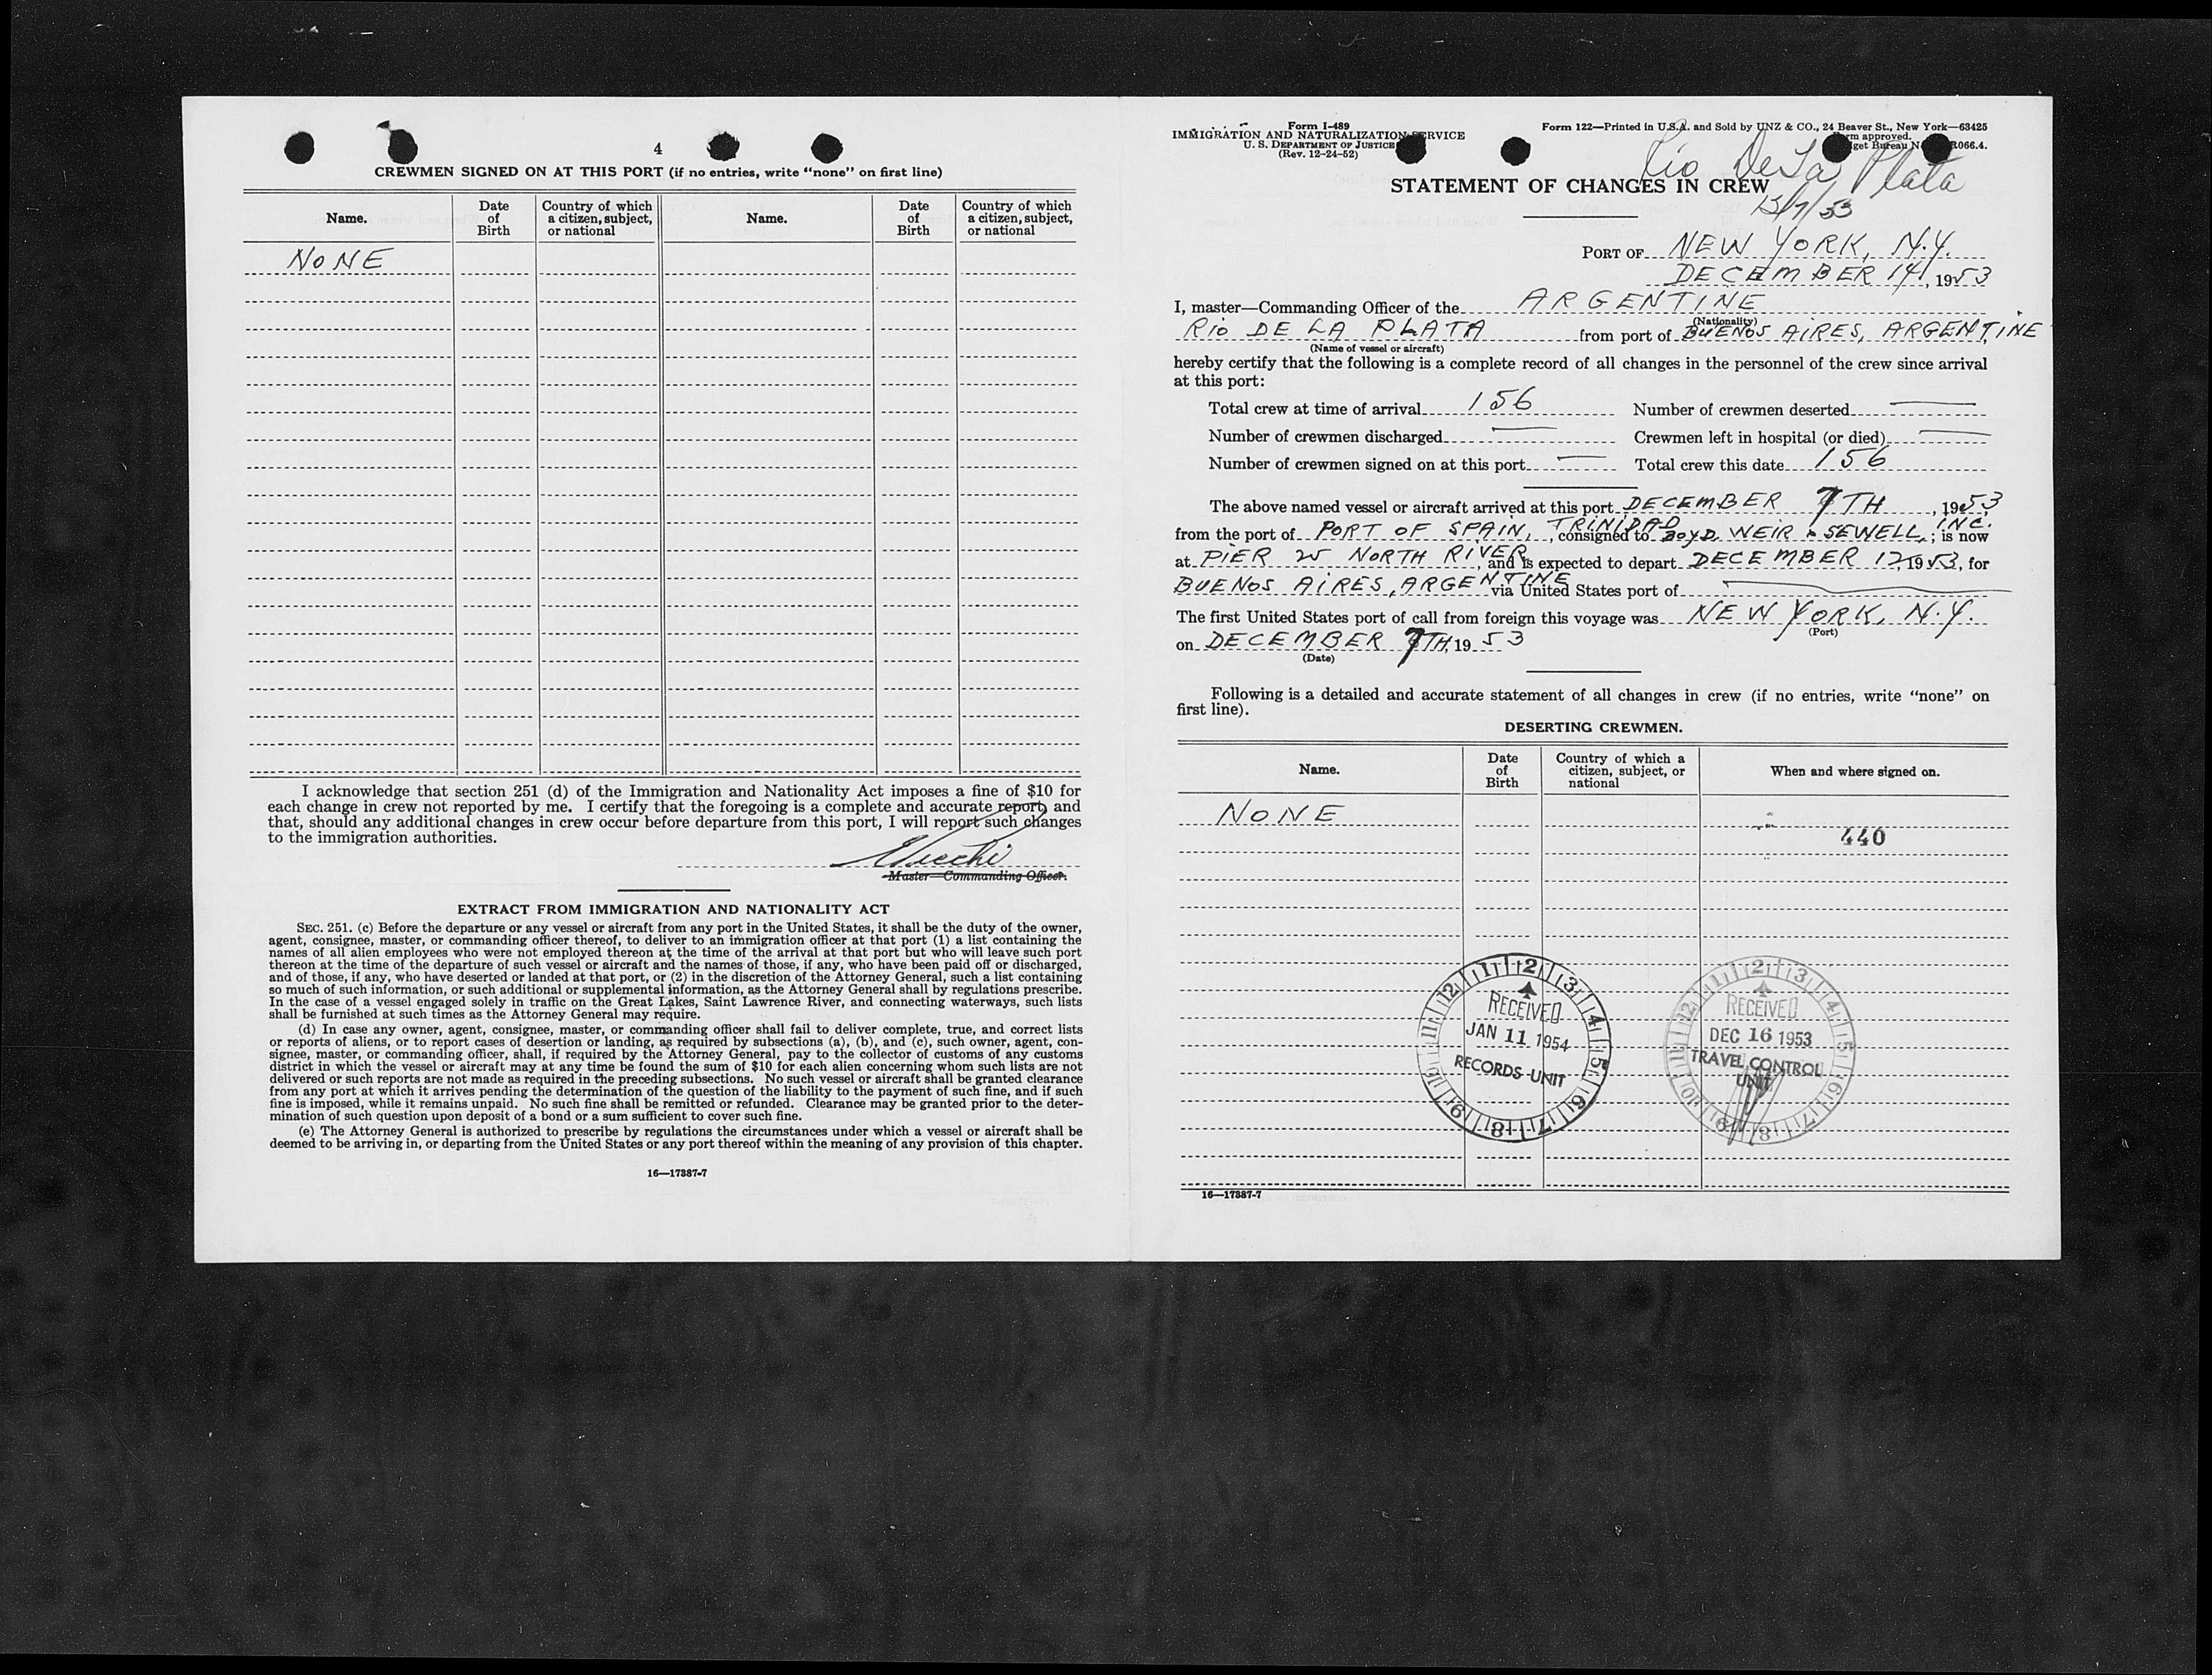 4
CREWMEN SIGNED ON AT THIS PORT (if no entries, write “none” on first line)
Name.
Date of Birth
Country of which a citizen, subject, or national
Name.
Date of Birth
Country of which a citizen, subject, or national
NONE
I acknowledge that section 251 (d) of the Immigration and Nationality Act imposes a fine of $10 for
each change in crew not reported by me. I certify that the foregoing is a complete and accurate report, and
that, should any additional changes in crew occur before departure from this port, I will report such changes
to the immigration authorities.
Master—Commanding Officer.
EXTRACT FROM IMMIGRATION AND NATIONALITY ACT
SEC. 251. (c) Before the departure or any vessel or aircraft from any port in the United States, it shall be the duty of the owner,
agent, consignee, master, or commanding officer thereof, to deliver to an immigration officer at that port (1) a list containing the
names of all alien employees who were not employed thereon at the time of the arrival at that port but who will leave such port
thereon at the time of the departure of such vessel or aircraft and the names of those, if any, who have been paid off or discharged,
and of those, if any, who have deserted or landed at that port, or (2) in the discretion of the Attorney General, such a list containing
so much of such information, or such additional or supplemental information, as the Attorney General shall by regulations prescribe.
In the case of a vessel engaged solely in traffic on the Great Lakes, Saint Lawrence River, and connecting waterways, such lists
shall be furnished at such times as the Attorney General may require.
(d) In case any owner, agent, consignee, master, or commanding officer shall fail to deliver complete, true, and correct lists
or reports of aliens, or to report cases of desertion or landing, as required by subsections (a), (b), and (c), such owner, agent, con-
signee, master, or commanding officer, shall, if required by the Attorney General, pay to the collector of customs of any customs
district in which the vessel or aircraft may at any time be found the sum of $10 for each alien concerning whom such lists are not
delivered or such reports are not made as required in the preceding subsections. No such vessel or aircraft shall be granted clearance
from any port at which it arrives pending the determination of the question of the liability to the payment of such fine, and if such
fine is imposed, while it remains unpaid. No such fine shall be remitted or refunded. Clearance may be granted prior to the deter-
mination of such question upon deposit of a bond or a sum sufficient to cover such fine.
(e) The Attorney General is authorized to prescribe by regulations the circumstances under which a vessel or aircraft shall be
deemed to be arriving in, or departing from the United States or any port thereof within the meaning of any provision of this chapter.
16—17887-7
Form I-489
IMMIGRATION AND NATURALIZATION
U. S. DEPARTMENT OF JUSTICE
(Rev. 12-24-52)
Form 122—Printed in U.S.A. and Sold by UNZ & CO., 24 Beaver St., New York—63425
approved.
Bureau
Rio De La Plata
STATEMENT OF CHANGES IN CREW
PORT OF NEW YORK, N.Y.
DECEMBER 14, 1953
I, master—Commanding Officer of the ARGENTINE
(Nationality)
RIO DE LA PLATA from port of BUENOS AIRES, ARGENTINE
(Name of vessel or aircraft)
hereby certify that the following is a complete record of all changes in the personnel of the crew since arrival
at this port:
Total crew at time of arrival 156 Number of crewmen deserted —
Number of crewmen discharged — Crewmen left in hospital (or died) —
Number of crewmen signed on at this port — Total crew this date 156
The above named vessel or aircraft arrived at this port DECEMBER 7TH, 1953,
from the port of PORT OF SPAIN, TRINIDAD, consigned to BOYD, WEIR & SEWELL, INC.; is now
at PIER 25 NORTH RIVER, and is expected to depart DECEMBER 17, 1953, for
BUENOS AIRES, ARGENTINE via United States port of —
The first United States port of call from foreign this voyage was NEW YORK, N.Y.
(Port)
on DECEMBER 7TH, 1953
(Date)
Following is a detailed and accurate statement of all changes in crew (if no entries, write “none” on
first line).
DESERTING CREWMEN.
Name.
Date of Birth
Country of which a citizen, subject, or national
When and where signed on.
NONE
440
RECEIVED
JAN 11 1954
RECORDS UNIT
RECEIVED
DEC 16 1953
TRAVEL CONTROL
UNIT
16—17887-7